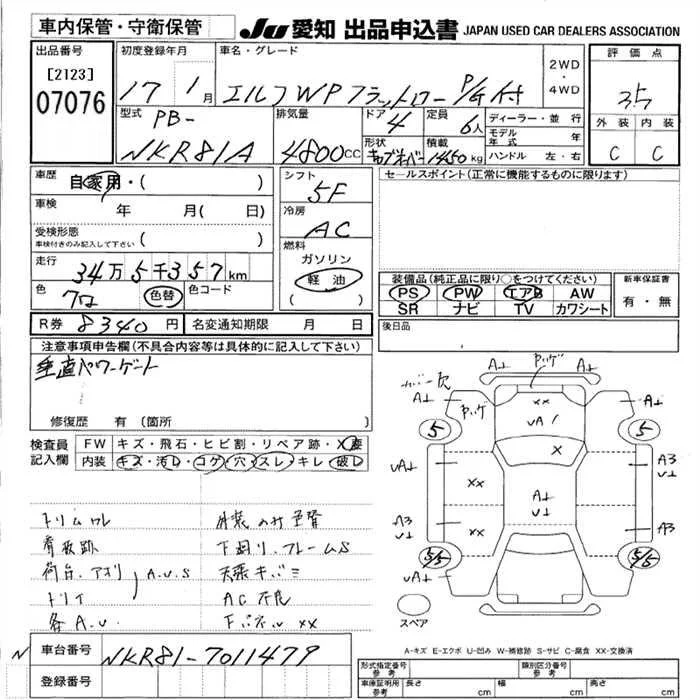 車内保管・守衛保管 JU 愛知 出品申込書 JAPAN USED CAR DEALERS ASSOCIATION
出品番号 [2123] 07076
初度登録年月 17 1月
車名・グレード エルフWP フラットロー P/G付
2WD・4WD
評価点 3.5
外装 C 内装 C
型式 PB- NKR81A
排気量 4800cc
ドア 4 定員 6人
形状 積載 1450kg
ディーラー・並行
モデル年式
ハンドル 左・右
車歴 自家用・( )
車検 年 月( 日)
受検形態 車検付きのみ記入して下さい ( )
走行 34万5千357km
色 色替 色コード
シフト 5F
冷房 AC
燃料 ガソリン 軽油 ( )
セールスポイント(正常に機能するものに限ります)
装備品(純正品に限り○をつけてください)
PS PW エアB AW
SR ナビ TV カワシート
新車保証書 有・無
R券 8340円 名変通知期限 月 日
後日品
注意事項申告欄(不具合内容等は具体的に記入して下さい)
垂直パワーゲート
修復歴 有 (箇所
検査員記入欄 FW キズ・飛石・ヒビ割・リペア跡・X
内装 キズ・汚レ・コゲ・穴・スレ・キレ・破レ
トリムワレ 外装のみ色替
看板跡 下廻り、フレームS
荷台、アオリ A.U.S 天張キバミ
トリイ AC不良
各A.U. XX
車台番号 NKR81-7011479
登録番号
バンパー欠 A⊥ A⊥ ヤッゲ
A⊥ ヤッゲ XX A⊥
5 UA1 5
X
UA⊥ XX A⊥ U⊥ A3 U⊥
A3 U⊥ XX A3
5/5 5/5
UA⊥
スペア
A-キズ E-エクボ U-凹み W-補修跡 S-サビ C-腐食 XX-交換済
形式指定番号 参考 類別区分番号 参考
車庫証明用 参考 長さ cm 幅 cm 高さ cm